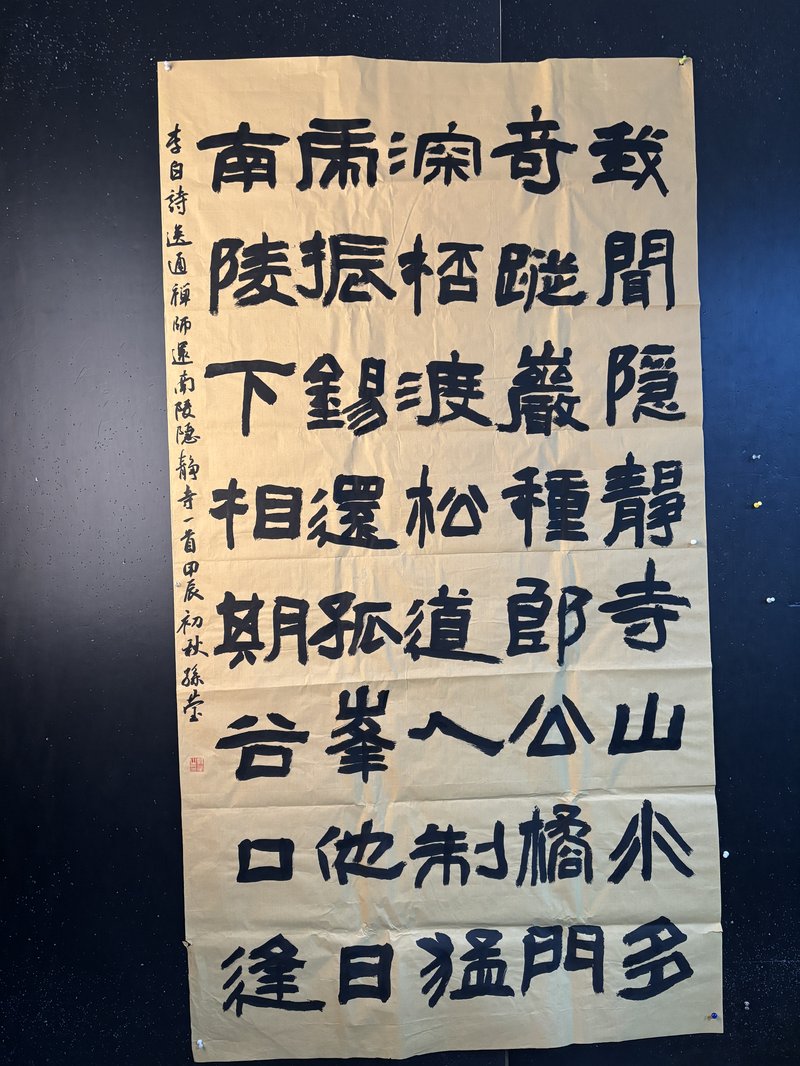 我聞隐靜寺山水多
奇蹤巖種郎公橘門
深桮渡松道人制猛
虎振錫還孤峯他日
南陵下相期谷口逢
李白詩送通禪師還南陵隐靜寺一首甲辰初秋孫莹